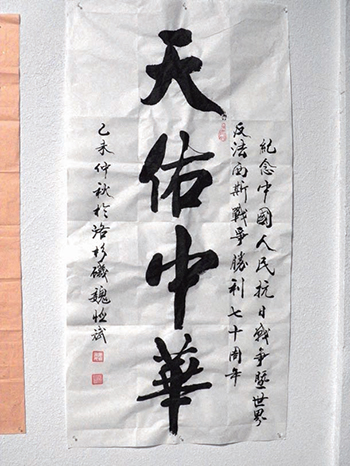 紀念中國人民抗日戰爭暨世界
反法西斯戰爭勝利七十周年
天佑中華
乙未仲秋於洛杉磯魏恒斌